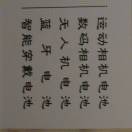 运动相机电池
数码相机电池
无人机电池
蓝牙电池
智能穿戴电池